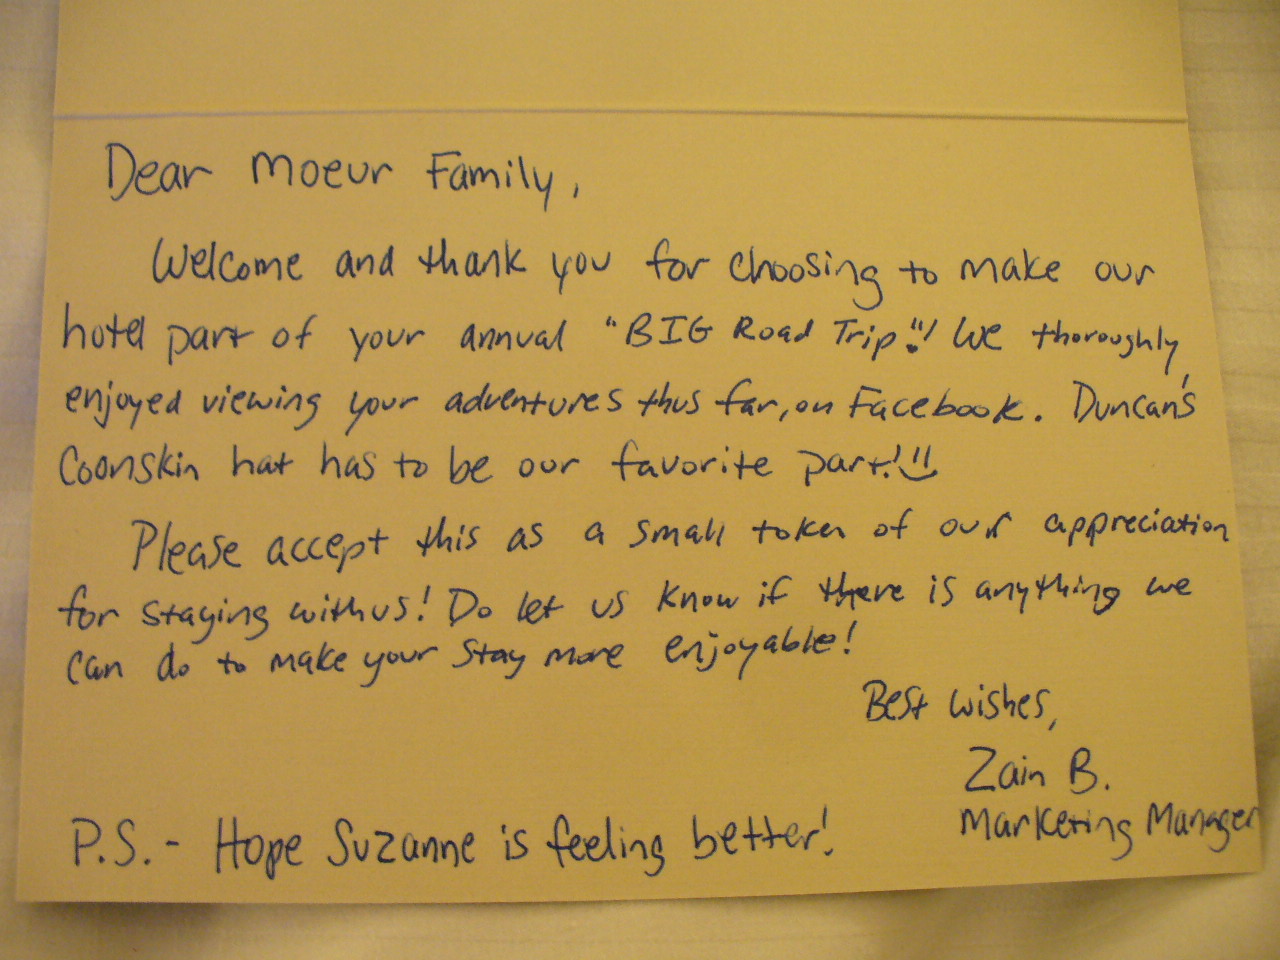 Dear Moeur Family,
Welcome and thank you for choosing to make our
hotel part of your annual "BIG Road Trip"! We thoroughly
enjoyed viewing your adventures thus far, on Facebook. Duncan's
Coonskin hat has to be our favorite part! ツ
Please accept this as a small token of our appreciation
for staying with us! Do let us know if there is anything we
can do to make your stay more enjoyable!
Best wishes,
Zain B.
Marketing Manager
P.S. - Hope Suzanne is feeling better!